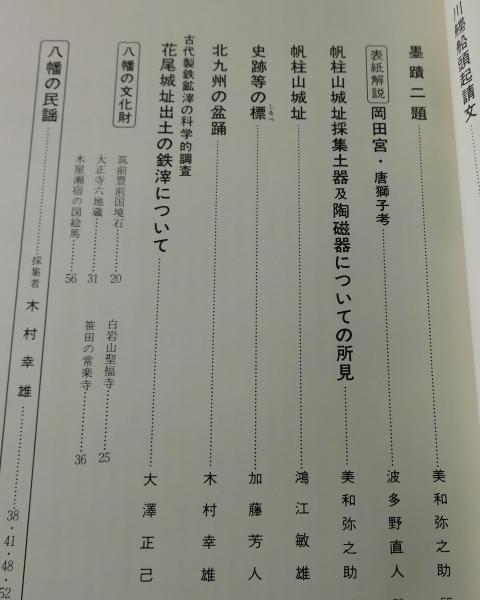 川艜船頭起請文
墨蹟二題……美和弥之助
表紙解説 岡田宮・唐獅子考……波多野直人
帆柱山城址採集土器及陶磁器についての所見……美和弥之助
帆柱山城址……鴻江敏雄
史跡等の標……加藤芳人
しるべ
北九州の盆踊……木村幸雄
古代製鉄鉱滓の科学的調査
花尾城址出土の鉄滓について……大澤正己
八幡の文化財
筑前豊前国境石……20
大正寺六地蔵……31
木屋瀬宿の図絵馬……56
白岩山聖福寺……25
笹田の常楽寺……36
八幡の民謡……採集者 木村幸雄……38・41・48・52